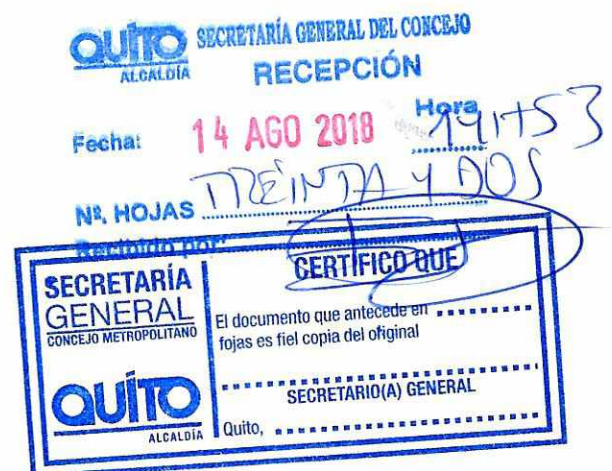 QUITO
ALCALDÍA
SECRETARÍA GENERAL DEL CONCEJO
RECEPCIÓN
Fecha: 14 AGO 2018 Hora 14H53
Nº. HOJAS TREINTA Y DOS
Recibido por:
SECRETARÍA
GENERAL
CONCEJO METROPOLITANO
QUITO
ALCALDÍA
CERTIFICO QUE
El documento que antecede en
fojas es fiel copia del original
SECRETARIO(A) GENERAL
Quito,